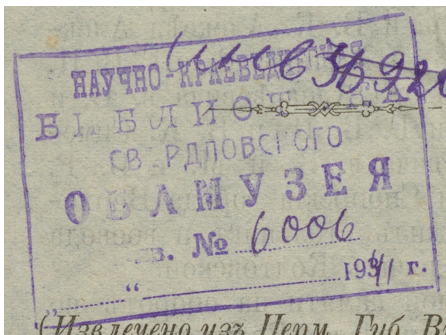 НАУЧНО-КРАЕВЕДЧЕСКАЯ
БІБЛИОТЕКА
СВЕРДЛОВСКОГО
ОБЛМУЗЕЯ
в. № 6006
„ “ 1941 г.
(Извлечено изъ Перм. Губ. В